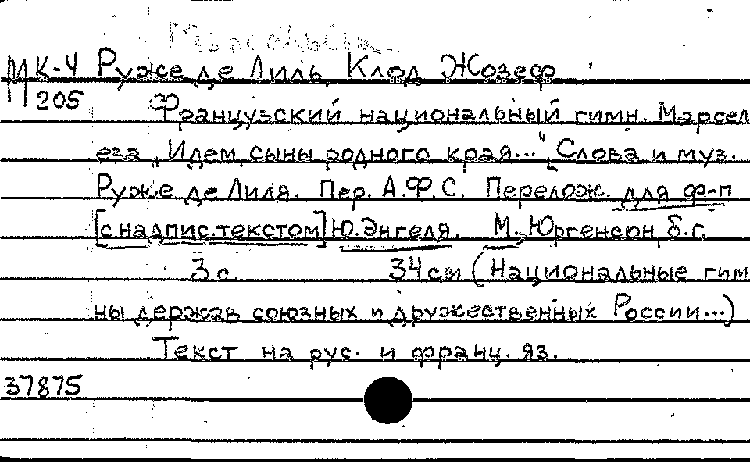 МК-4 Руже де Лиль, Клод Жозеф
205 Французский национальный гимн. Марсел
еза „Идем, сыны родного края..." Слова и муз.
Руже де Лиля. Пер. А.Ф.С. Перелож. для ф-п
[с надпис. текстом] Ю. Энгеля. М., Юргенсон, б.г.
3 с. 34 см (Национальные гим
ны держав союзных и дружественных России...)
Текст на рус. и франц. яз.
37875